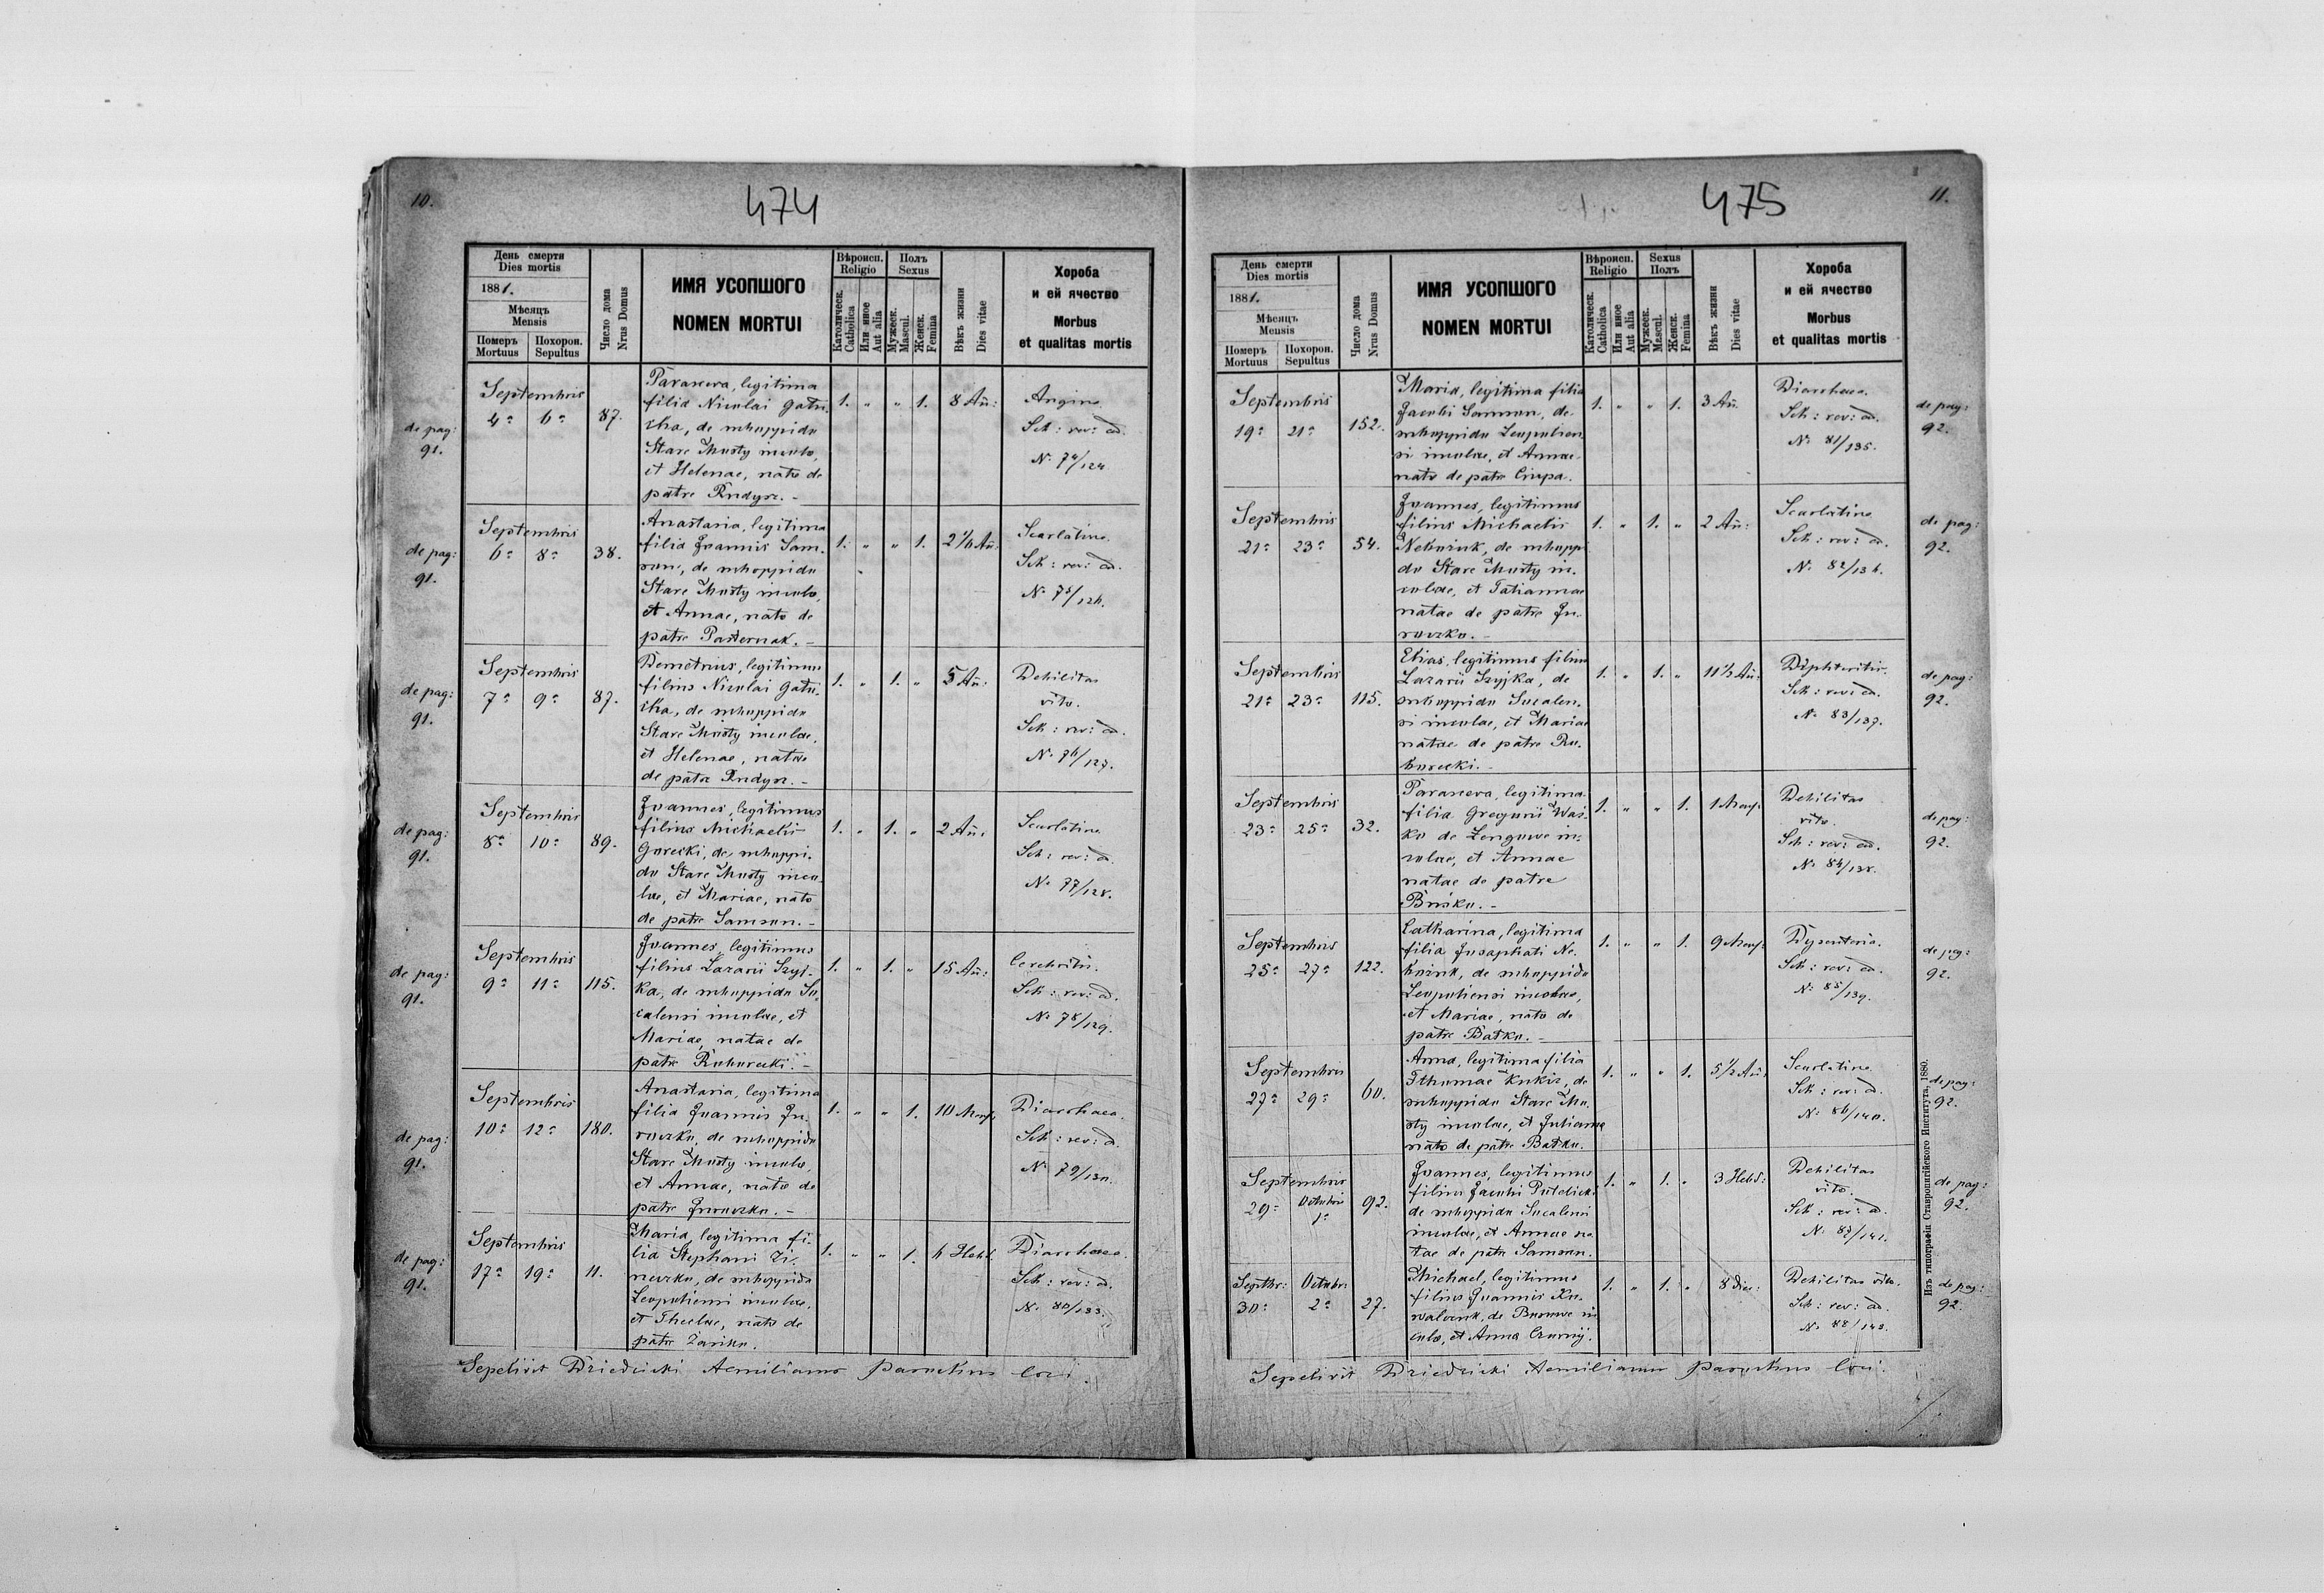 10.
474
День смерти
Dies mortis
1881.
Мѣсяцъ
Mensis
Померъ
Mortuus
Похорон.
Sepultus
Число дома
Nrus Domus
ИМЯ УСОПШОГО
NOMEN MORTUI
Вѣроисп.
Religio
Католическ.
Catholica
Или иное
Aut alia
Полъ
Sexus
Мужеск.
Mascul.
Женск.
Femina
Вѣкъ жизни
Dies vitae
Хороба
и ей ячество
Morbus
et qualitas mortis
de pag:
91.
Septembris
4ᵃ 6ᵃ 87.
Parasceva, legitima
filia Nicolai
de suboppido
Stare Miasty incolae,
et Helenae, natae de
patre Rndysz. -
1. " " 1. 8 Añ:
Angina.
Sch: rev: ad.
Nᵒ 74/124
de pag:
91.
Septembris
6ᵃ 8ᵃ 38.
Anastasia, legitima
filia Joannis Sam-
son, de suboppido
Stare Miasty incolae,
et Annae, natae de
patre Pasternak. -
1. " " 1. 2 1/6 Añ:
Scarlatina.
Sch: rev: ad.
Nᵒ 75/126.
de pag:
91.
Septembris
7ᵃ 9ᵃ 87.
Demetrius, legitimus
filius Nicolai
de suboppido
Stare Miasty incolae,
et Helenae, natae
de patre Rndysz. -
1. " 1. " 5 Añ:
Debilitas
vitae.
Sch: rev: ad.
Nᵒ 76/127.
de pag:
91.
Septembris
8ᵃ 10ᵃ 89.
Joannes, legitimus
filius Michaelis
Gorecki, de suboppi-
do Stare Miasty inco-
lae, et Mariae, natae
de patre Samson. -
1. " 1. " 2 Añ:
Scarlatina
Sch: rev: ad.
Nᵒ 77/128.
de pag:
91.
Septembris
9ᵃ 11ᵃ 115.
Joannes, legitimus
filius Lazarii Szyj-
ka, de suboppido So-
calensi incolae, et
Mariae, natae de
patre Rohorecki. -
1. " 1. " 15 Añ:
Cerebritis.
Sch: rev: ad.
Nᵒ 78/129.
de pag:
91.
Septembris
10ᵃ 12ᵃ 180.
Anastasia, legitima
filia Joannis Ju-
roczko, de suboppido
Stare Miasty incolae,
et Annae, natae de
patre Juroczko. -
1. " " 1. 10 Mens:
Diarrhaea.
Sch: rev: ad.
Nᵒ 79/130.
de pag:
91.
Septembris
17ᵃ 19ᵃ 11.
Maria, legitima fi-
lia Stephani Zi-
noczko, de suboppido
Leopoliensi incolae,
et Theclae, natae de
patre Zariko.
1. " " 1. 6 Hebd.
Diarrhaea.
Sch: rev: ad.
Nᵒ 80/133.
Sepelivit Dziedzicki Aemilianus Parochus loci.
475
11.
День смерти
Dies mortis
1881.
Мѣсяцъ
Mensis
Померъ
Mortuus
Похорон.
Sepultus
Число дома
Nrus Domus
ИМЯ УСОПШОГО
NOMEN MORTUI
Вѣроисп.
Religio
Католическ.
Catholica
Или иное
Aut alia
Sexus
Полъ
Мужеск.
Mascul.
Женск.
Femina
Вѣкъ жизни
Dies vitae
Хороба
и ей ячество
Morbus
et qualitas mortis
Septembris
19ᵃ 21ᵃ 152.
Maria, legitima filia
Jacobi Samson, de
suboppido Leopolien-
si incolae, et Annae
natae de patre Ciupa.
1. " " 1. 3 Añ.
Diarrhaea.
Sch: rev: ad.
Nᵒ 81/135.
de pag:
92.
Septembris
21ᵃ 23ᵃ 54.
Joannes, legitimus
filius Michaelis
de suboppi-
do Stare Miasty in-
colae, et Tatiannae
natae de patre Ju-
roczko. -
1. " 1. " 2 Añ:
Scarlatina
Sch: rev: ad.
Nᵒ 82/136.
de pag:
92.
Septembris
21ᵃ 23ᵃ 115.
Elias, legitimus filius
Lazarii Szyjka, de
suboppido Socalen-
si incolae, et Mariae
natae de patre Ro-
horecki. -
1. " 1. " 11 1/2 Añ:
Diphteritis.
Sch: rev: ad.
Nᵒ 83/137.
de pag:
92.
Septembris
23ᵃ 25ᵃ 32.
Parasceva, legitima
filia Gregorii Waś-
ko de Zengowe in-
colae, et Annae
natae de patre
Buśko. -
1. " " 1. 1 Mens:
Debilitas
vitae.
Sch: rev: ad.
Nᵒ 84/138.
de pag:
92.
Septembris
25ᵃ 27ᵃ 122.
Catharina, legitima
filia Josaphati
de suboppido
Leopoliensi incolae,
et Mariae, natae de
patre Batko. -
1. " " 1. 9 Mens:
Dysenteria.
Sch: rev: ad.
Nᵒ 85/139.
de pag:
92.
Septembris
27ᵃ 29ᵃ 60.
Anna, legitima filia
Thomae Kukiz, de
suboppido Stare Mia-
sty incolae, et Julianna
natae de patre Batko.
1. " " 1. 5 1/2 Añ:
Scarlatina
Sch: rev: ad.
Nᵒ 86/140.
de pag:
92.
Septembris
29ᵃ Octobris
1ᵃ 92.
Joannes, legitimus
filius Jacobi
de suboppido Socalensi
incolae, et Annae na-
tae de patre Samson.
1. " 1. " 3 Hebd:
Debilitas
vitae.
Sch: rev: ad.
Nᵒ 87/141.
de pag:
92.
Septbr: Octobr:
30ᵃ 2ᵃ 27.
Michael, legitimus
filius Joannis Ko-
walczuk, de in-
colae, et Anna Czorny.
1. " 1. " 8 dies:
Debilitas vitae.
Sch: rev: ad.
Nᵒ 88/143.
de pag:
92.
Sepelivit Dziedzicki Aemilianus Parochus loci.
Изъ типографіи Ставропигійского Института, 1880.